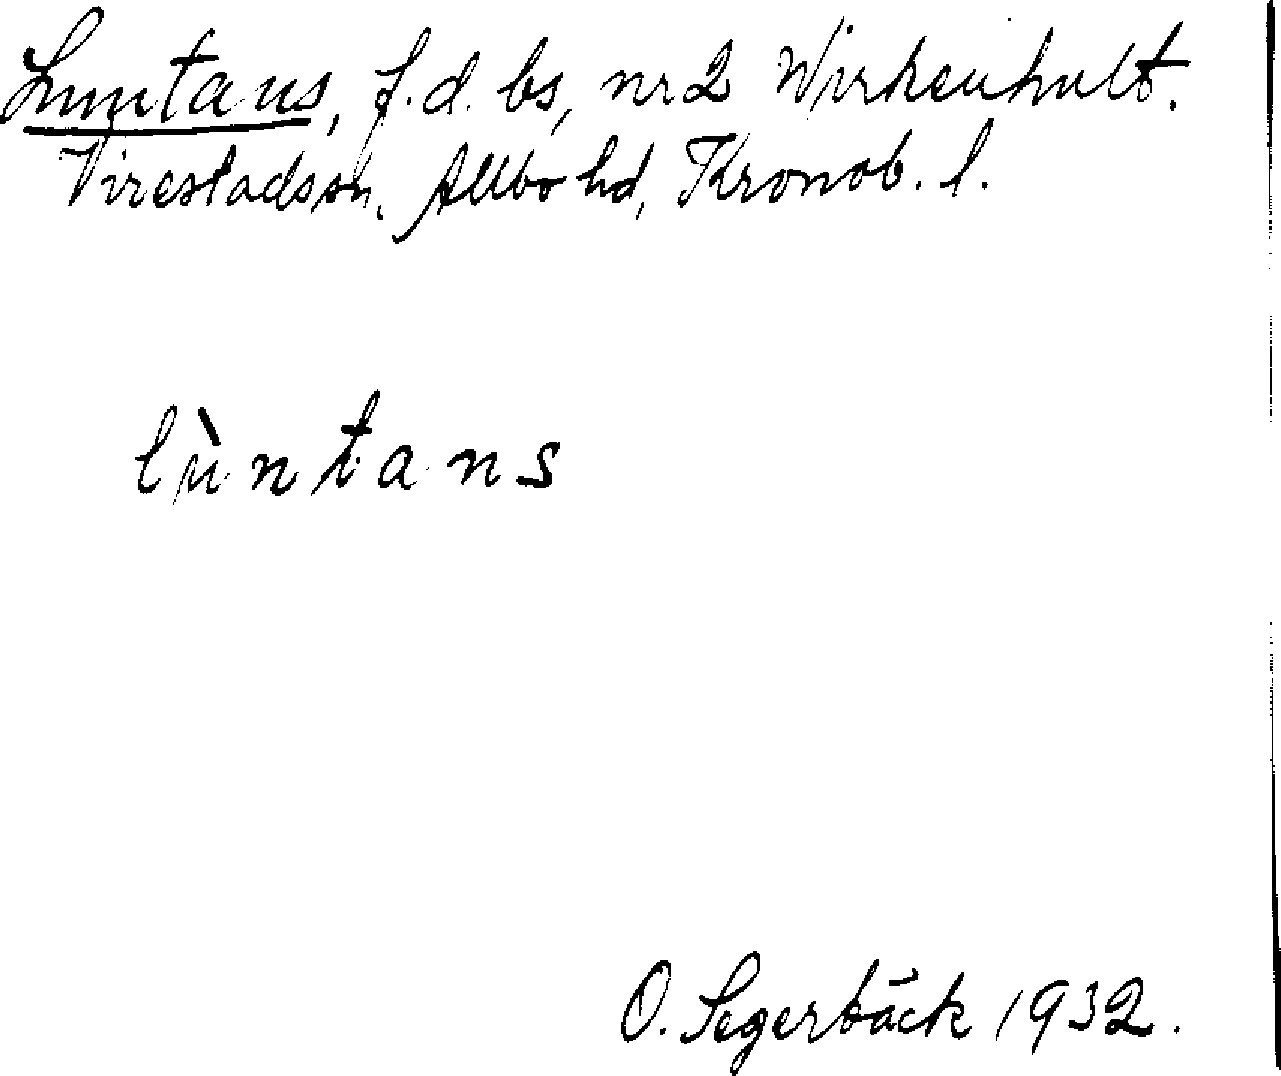 Luntans, f.d. bs, nr 2 Wirkenhult.
Virestads sn, Allbo hd, Kronob. l.
lùntans
O. Segerbäck 1932.